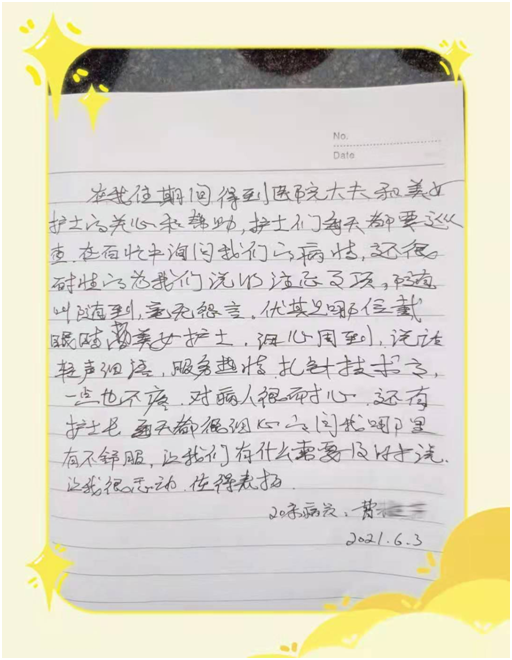 No.
Date
在我住期间得到医院大夫和美女
护士的关心和帮助，护士们每天都要巡
查，在百忙中询问我们的病情，还很
耐性的为我们说明注意事项，随
叫随到，毫无怨言，伏其是那位戴
眼睛美女护士，细心周到，说话
轻声细语，服务热情，扎针技术高，
一点也不疼，对病人很耐心，还有
护士长每天都很细心的问我哪里
有不舒服，让我们有什么需要及时说
让我很感动，值得表扬
20床病员：曹
2021.6.3